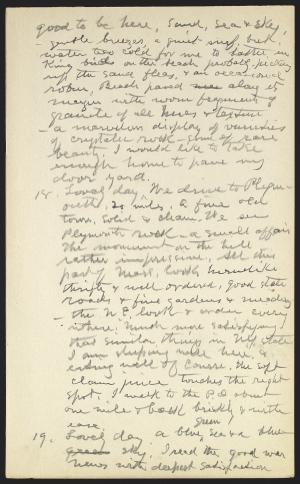 good to be here, Sand, Sea & Sky,
gentle breezes, a quiet surf, but
water too cold for me to bathe in
King birds on the beach probably picking
up the sand fleas, & an occasional
robin, Beach paved along its
margin with worn fragments of
granite of all hues & texture
- a marvelous display of varieties
of crystalline rock - some of rare
beauty. I would like to take
enough home to pave my
door yard.
18. Lovely day, We drive to Plym-
outh, 20 miles, a fine old
town, solid & clean. We see
Plymouth rock - a small affair
the monument on the hill
rather impressive, All this
part of Mass. looks homelike
thrifty & well ordered, good state
roads & fine gardens & meadows
- the N.E. look & order every
where. Much more satisfying
than similar things in N.Y. State
I am sleeping well here, &
eating well of course. The soft
clam juice touches the right
spot. I walk to the P.O. about
one mile & back briskly & with
ease.
19. Lovely day, a blue sea & a blue
sky, I read the good war
news with deepest satisfaction